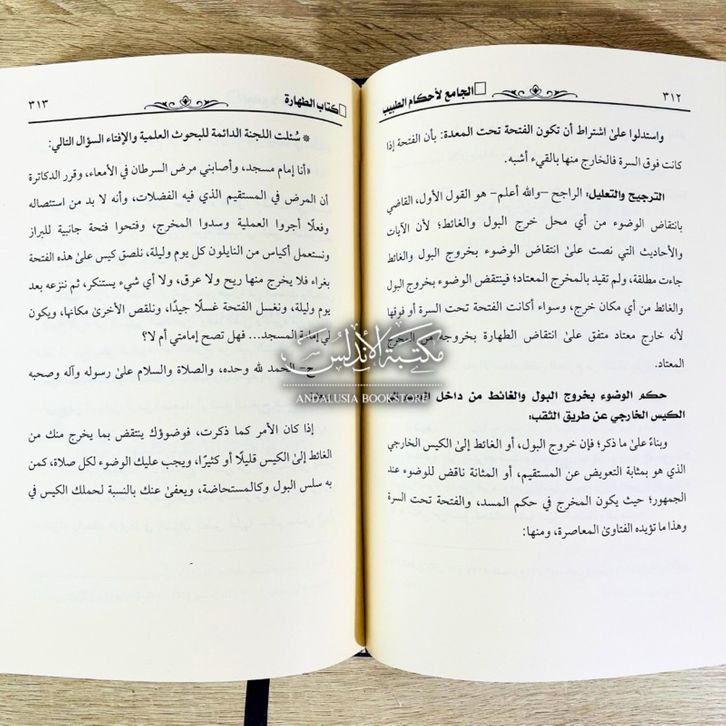 ٣١٢
الجامع لأحكام الطبيب
واستدلوا على اشتراط أن تكون الفتحة تحت المعدة: بأن الفتحة إذا
كانت فوق السرة فالخارج منها بالقيء أشبه.
الترجيح والتعليل: الراجح -والله أعلم- هو القول الأول، القاضي
بانتقاض الوضوء من أي محل خرج البول والغائط؛ لأن الآيات
والأحاديث التي نصت على انتقاض الوضوء بخروج البول والغائط
جاءت مطلقة، ولم تقيد بالمخرج المعتاد؛ فينتقض الوضوء بخروج البول
والغائط من أي مكان خرج، وسواء أكانت الفتحة تحت السرة أو فوقها
لأنه خارج معتاد متفق على انتقاض الطهارة بخروجه من المخرج
المعتاد.
حكم الوضوء بخروج البول والغائط من داخل
الكيس الخارجي عن طريق الثقب:
وبناءً على ما ذكر؛ فإن خروج البول، أو الغائط إلى الكيس الخارجي
الذي هو بمثابة التعويض عن المستقيم، أو المثانة ناقض للوضوء عند
الجمهور؛ حيث يكون المخرج في حكم المسد، والفتحة تحت السرة
وهذا ما تؤيده الفتاوى المعاصرة، ومنها:
كتاب الطهارة
٣١٣
* سُئلت اللجنة الدائمة للبحوث العلمية والإفتاء السؤال التالي:
«أنا إمام مسجد، وأصابني مرض السرطان في الأمعاء، وقرر الدكاترة
أن المرض في المستقيم الذي فيه الفضلات، وأنه لا بد من استئصاله
وفعلًا أجروا العملية وسدوا المخرج، وفتحوا فتحة جانبية للبراز
ونستعمل أكياس من النايلون كل يوم وليلة، نلصق كيس على هذه الفتحة
بغراء فلا يخرج منها ريح ولا عرق، ولا أي شيء يستنكر، ثم ننزعه بعد
يوم وليلة، ونغسل الفتحة غسلًا جيدًا، ونلقص الأخرى مكانها، ويكون
لي إمامة المسجد... فهل تصح إمامتي أم لا؟
ج- الحمد لله وحده، والصلاة والسلام على رسوله وآله وصحبه
إذا كان الأمر كما ذكرت، فوضوؤك ينتقض بما يخرج منك من
الغائط إلى الكيس قليلًا أو كثيرًا، ويجب عليك الوضوء لكل صلاة، كمن
به سلس البول وكالمستحاضة، ويعفى عنك بالنسبة لحملك الكيس في
مكتبة الأندلس
ANDALUSIA BOOKSTORE